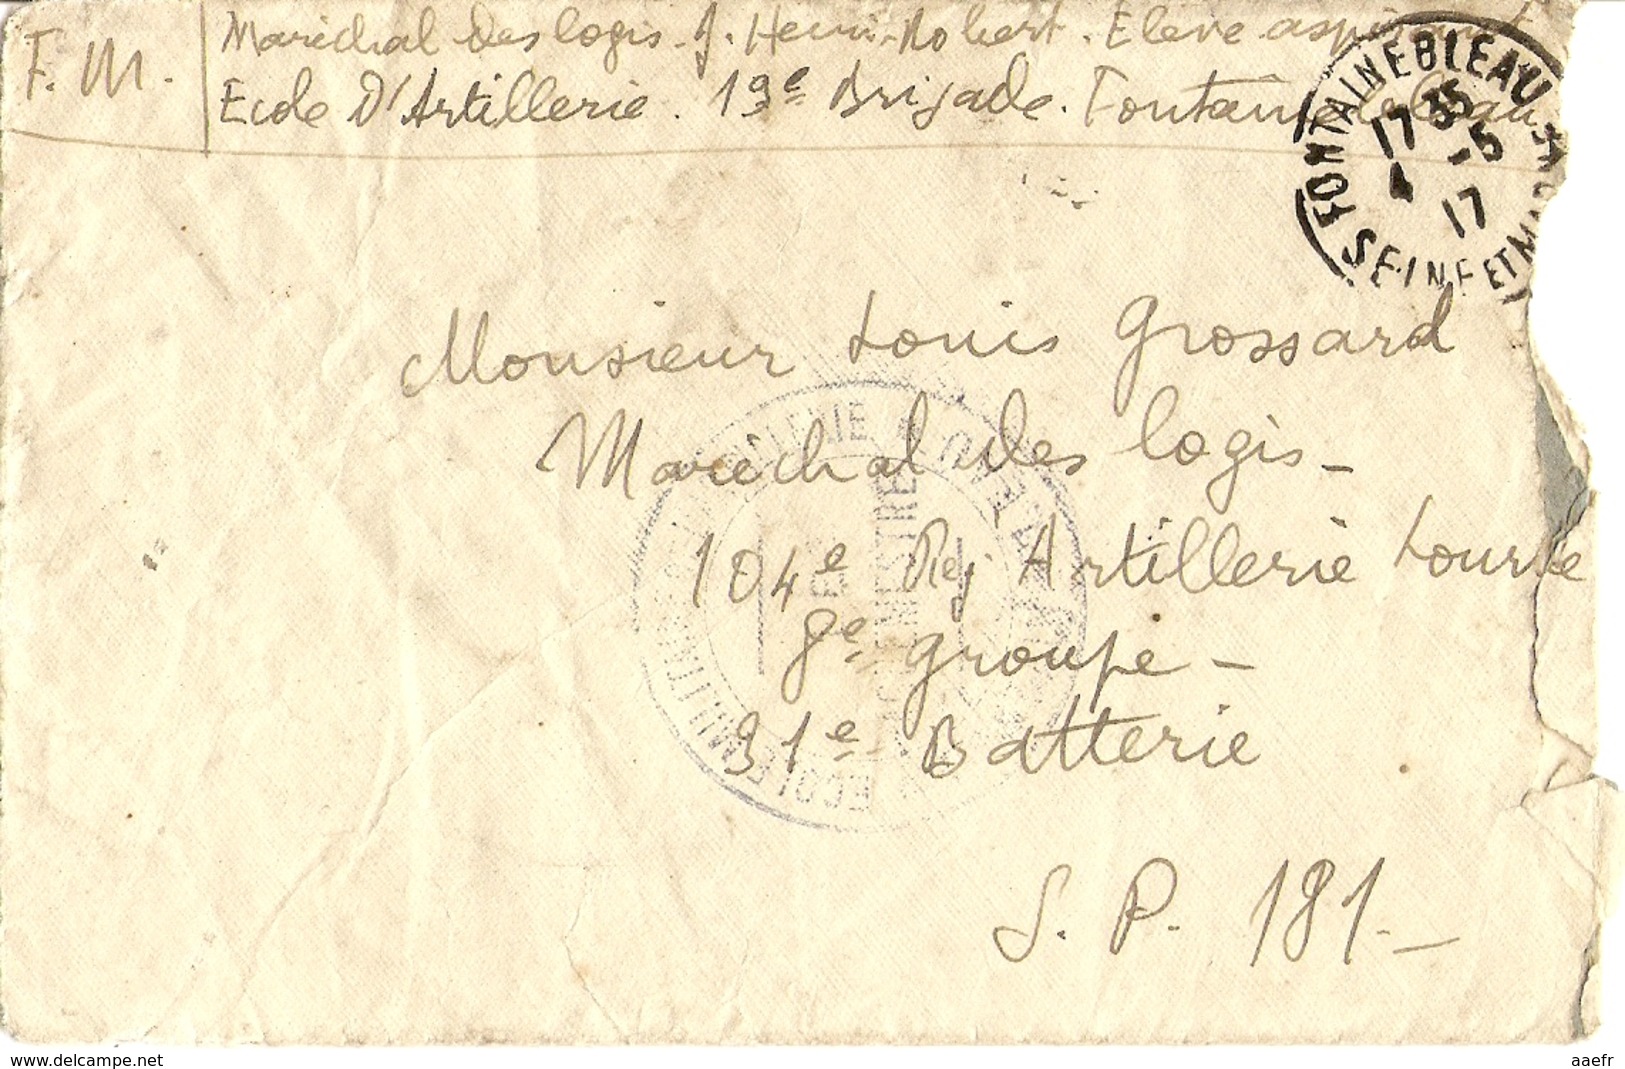 F. M.
Maréchal des logis. J. Henri-Robert. Elève aspirant
Ecole d'Artillerie. 19e Brigade. Fontainebleau.
FONTAINEBLEAU
17 35
4 -5
17
SEINE ET MAR
Monsieur Louis Grossard
Maréchal des logis -
104e Reg Artillerie Lourde
8e groupe -
31e Batterie
S. P. 181. -
ECOLE MILITAIRE D'ARTILLERIE
VAGUEMESTRE
www.delcampe.net
aaefr